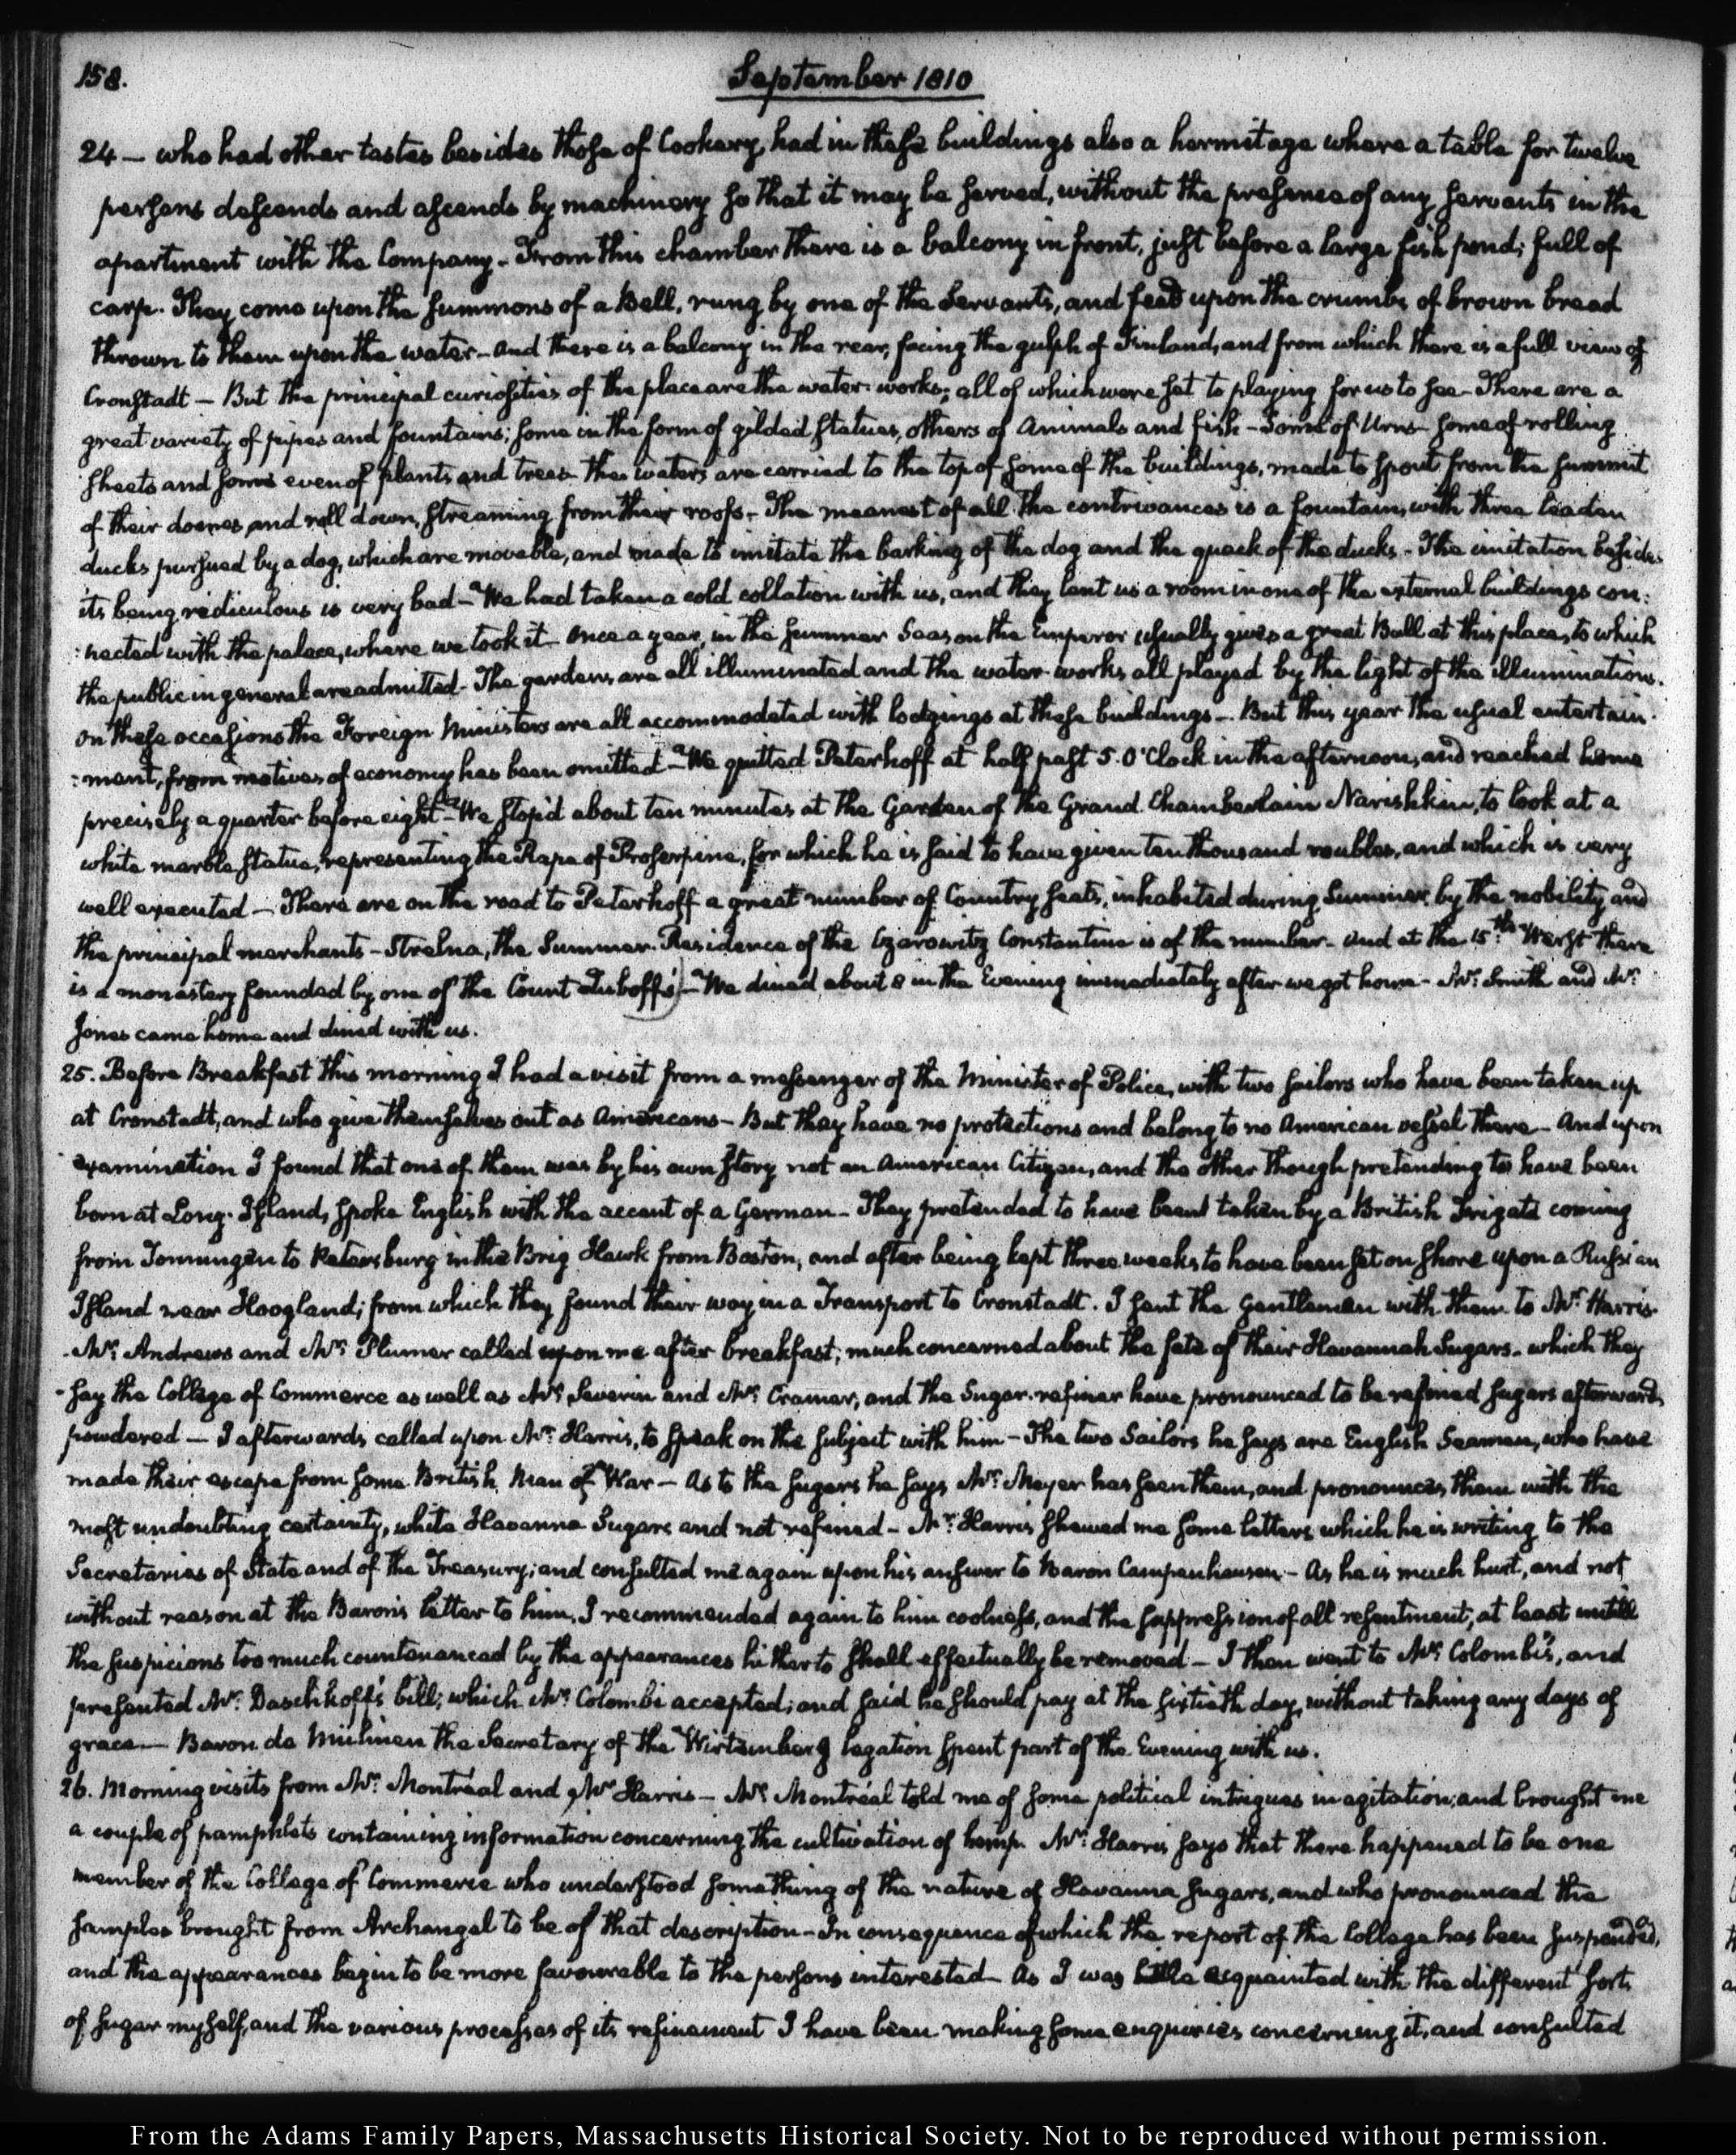 158.
September 1810
24 — who had other tastes besides those of Cookery, had in these buildings also a hermitage where a table for twelve
persons descends and ascends by machinery so that it may be served, without the presence of any servants in the
apartment with the Company - From this chamber there is a balcony in front, just before a large fish pond; full of
carp. They come upon the summons of a Bell, rung by one of the Servants, and feed upon the crumbs of brown bread
thrown to them upon the water - And there is a balcony in the rear, facing the gulph of Finland, and from which there is a full view of
Cronstadt — But the principal curiosities of the place are the water-works; all of which were set to playing for us to see - There are a
great variety of pipes and fountains; some in the form of gilded statues, others of Animals and fish - Some of Urns - some of rolling
sheets and some even of plants and trees - the waters are carried to the top of some of the buildings, made to spout from the summit
of their domes, and roll down, streaming from their roofs - The meanest of all the contrivances is a fountain, with three leaden
ducks pursued by a dog, which are movable, and made to imitate the barking of the dog and the quack of the ducks - The imitation besides
its being rediculous is very bad - We had taken a cold collation with us, and they lent us a room in one of the external buildings con:
:nected with the palace, where we took it - Once a year, in the summer Season the Emperor usually gives a great Ball at this place, to which
the public in general are admitted - The gardens are all illuminated and the water-works all played by the light of the illuminations.
On these occasions the Foreign Ministers are all accommodated with lodgings at these buildings - But this year the usual entertain:
:ment, from motives of economy has been omitted - We quitted Peterhoff at half past 5. O'Clock in the afternoon, and reached home
precisely a quarter before eight - We stop'd about ten minutes at the Garden of the Grand Chamberlain Narishkin, to look at a
white marble statue, representing the Rape of Proserpine, for which he is said to have given ten thousand roubles, and which is very
well executed — There are on the road to Peterhoff a great number of Country seats, inhabited during Summer, by the nobility and
the principal merchants - Strelna, the Summer Residence of the Czarowitz Constantine is of the number - And at the 15th Werst there
is a monastery founded by one of the Count Zuboff's) - We dined about 8 in the Evening immediately after we got home - Mr. Smith and Mr.
Jones came home and dined with us.
25. Before Breakfast this morning I had a visit from a messenger of the Minister of Police, with two sailors who have been taken up
at Cronstadt, and who give themselves out as Americans - But they have no protections and belong to no American vessel there - And upon
examination I found that one of them was by his own story not an American Citizen, and the other though pretending to have been
born at Long-Island, spoke English with the accent of a German - They pretended to have been taken by a British Frigate coming
from Tonningen to Petersburg in the Brig Hawk from Boston, and after being kept three weeks to have been set on shore upon a Russian
Island near Hoogland; from which they found their way in a Transport to Cronstadt. I sent the Gentlemen with them to Mr. Harris.
Mr. Andrews and Mr. Plumer called upon me after breakfast; much concerned about the fate of their Havannah Sugars - which they
say the College of Commerce as well as Mr. Severin and Mr. Cramer, and the Sugar-refiner have pronounced to be refined sugars afterwards
powdered — I afterwards called upon Mr. Harris, to speak on the subject with him - The two Sailors he says are English Seamen, who have
made their escape from some British Man of War — As to the sugars he says Mr. Meyer has seen them, and pronounces them with the
most undoubting certainty, white Havanna Sugars and not refined - Mr. Harris shewed me some letters which he is writing to the
Secretaries of State and of the Treasury; and consulted me again upon his answer to Baron Campenhausen - As he is much hurt, and not
without reason at the Baron's letter to him, I recommended again to him coolness, and the suppression of all resentment, at least untill
the suspicions too much countenanced by the appearances hitherto shall effectually be removed — I then went to Mr. Colombi's, and
presented Mr. Daschkoff's bill; which Mr. Colombi accepted; and said he should pay at the sixtieth day, without taking any days of
grace — Baron de Mulinen the Secretary of the Wirtemberg legation spent part of the Evening with us.
26. Morning visits from Mr. Montréal and Mr. Harris — Mr. Montréal told me of some political intrigues in agitation; and brought me
a couple of pamphlets containing information concerning the cultivation of hemp. Mr. Harris says that there happened to be one
member of the College of Commerce who understood something of the nature of Havanna sugars, and who pronounced the
samples brought from Archangel to be of that description - In consequence of which the report of the College has been suspended,
and the appearances begin to be more favourable to the persons interested - As I was little acquainted with the different sorts
of sugar myself, and the various processes of its refinement I have been making some enquiries concerning it, and consulted
From the Adams Family Papers, Massachusetts Historical Society. Not to be reproduced without permission.